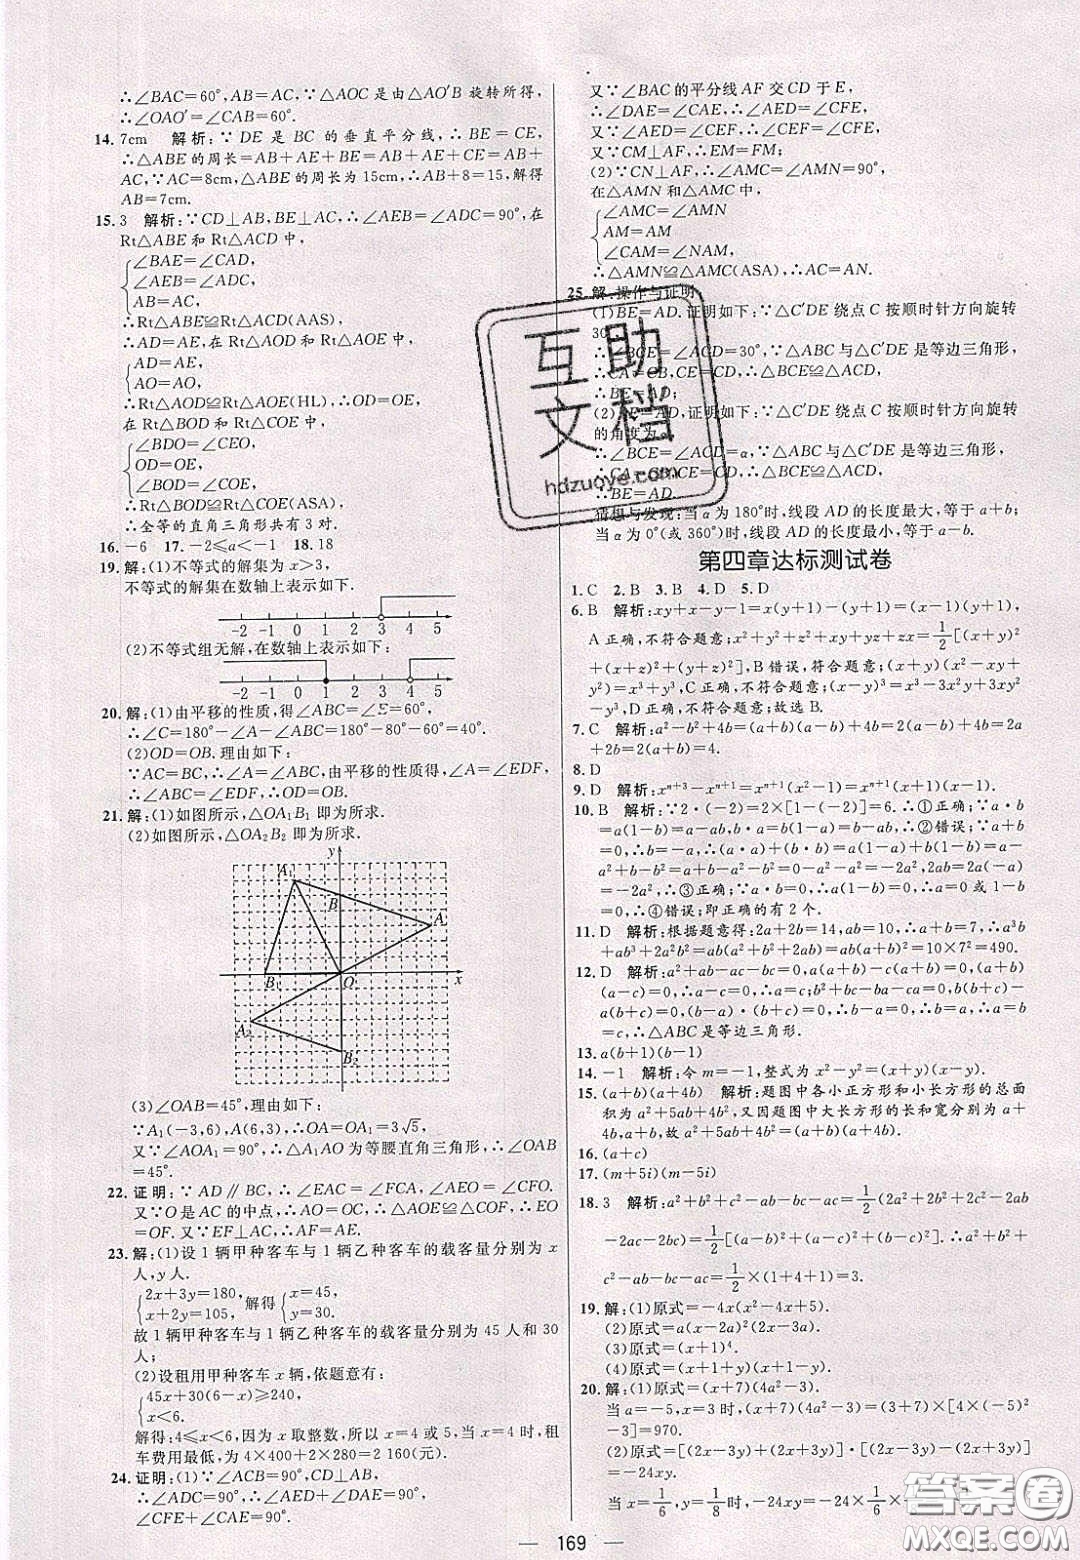 ∴∠BAC=60°,AB=AC,∵△AOC是由△AO′B旋转所得,
∴∠OAO′=∠CAB=60°.
14. 7cm 解析:∵DE是BC的垂直平分线,∴BE=CE,
∴△ABE的周长=AB+AE+BE=AB+AE+CE=AB+
AC,∵AC=8cm,△ABE的周长为15cm,∴AB+8=15,解得
AB=7cm.
15. 3 解析:∵CD⊥AB,BE⊥AC,∴∠AEB=∠ADC=90°,在
Rt△ABE和Rt△ACD中,
∠BAE=∠CAD,
∠AEB=∠ADC,
AB=AC,
∴Rt△ABE≌Rt△ACD(AAS),
∴AD=AE,在Rt△AOD和Rt△AOE中,
AD=AE,
AO=AO,
∴Rt△AOD≌Rt△AOE(HL),∴OD=OE,
在Rt△BOD和Rt△COE中,
∠BDO=∠CEO,
OD=OE,
∠BOD=∠COE,
∴Rt△BOD≌Rt△COE(ASA),
∴全等的直角三角形共有3对.
16. -6 17. -2≤a<-1 18. 18
19. 解:(1)不等式的解集为x>3,
不等式的解集在数轴上表示如下.
-2 -1 0 1 2 3 4 5
(2)不等式组无解,在数轴上表示如下:
-2 -1 0 1 2 3 4 5
20. 解:(1)由平移的性质,得∠ABC=∠E=60°,
∴∠C=180°-∠A-∠ABC=180°-80°-60°=40°.
(2)OD=OB.理由如下:
∵AC=BC,∴∠A=∠ABC,由平移的性质得,∠A=∠EDF,
∴∠ABC=∠EDF,∴OD=OB.
21. 解:(1)如图所示,△OA₁B₁即为所求.
(2)如图所示,△OA₂B₂即为所求.
y
A₁
B
A
B₁ O x
A₂
B₂
(3)∠OAB=45°,理由如下:
∵A₁(-3,6),A(6,3),∴OA=OA₁=3√5,
又∵∠AOA₁=90°,∴△A₁AO为等腰直角三角形,∴∠OAB
=45°.
22. 证明:∵AD∥BC,∴∠EAC=∠FCA,∠AEO=∠CFO.
又∵O是AC的中点,∴AO=OC,∴△AOE≌△COF,∴EO
=OF.又∵EF⊥AC,∴AF=AE.
23. 解:(1)设1辆甲种客车与1辆乙种客车的载客量分别为x
人,y人.
2x+3y=180, x+2y=105, 解得 x=45, y=30.
故1辆甲种客车与1辆乙种客车的载客量分别为45人和30
人;
(2)设租用甲种客车x辆,依题意有:
45x+30(6-x)≥240,
x<6.
解得:4≤x<6,因为x取整数,所以x=4或5,当x=4时,租
车费用最低,为4×400+2×280=2 160(元).
24. 证明:(1)∵∠ACB=90°,CD⊥AB,
∴∠ADC=90°,∴∠AED+∠DAE=90°,
∠CFE+∠CAE=90°.
又∵∠BAC的平分线AF交CD于E,
∴∠DAE=∠CAE,∴∠AED=∠CFE,
又∵∠AED=∠CEF,∴∠CEF=∠CFE,
又∵CM⊥AF,∴EM=FM;
(2)∵CN⊥AF,∴∠AMC=∠AMN=90°,
在△AMN和△AMC中,
∠AMC=∠AMN
AM=AM
∠CAM=∠NAM,
∴△AMN≌△AMC(ASA),∴AC=AN.
25. 解:操作与证明
(1)BE=AD.证明如下:∵△C′DE绕点C按顺时针方向旋转
30°,
∴∠BCE=∠ACD=30°,∵△ABC与△C′DE是等边三角形,
∴CA=CB,CE=CD,∴△BCE≌△ACD,
∴BE=AD.
(2)BE=AD,证明如下:∵△C′DE绕点C按顺时针方向旋转
的角度为α,
∴∠BCE=∠ACD=α,∵△ABC与△C′DE是等边三角形,
∴CA=CB,CE=CD,∴△BCE≌△ACD,
∴BE=AD.
猜想与发现:当α为180°时,线段AD的长度最大,等于a+b;
当α为0°(或360°)时,线段AD的长度最小,等于a-b.
互助
文档
hdzuoye.com
第四章达标测试卷
1. C 2. B 3. B 4. D 5. D
6. B 解析:xy+x-y-1=x(y+1)-(y+1)=(x-1)(y+1),
A正确,不符合题意;x²+y²+z²+xy+yz+zx=1/2[(x+y)²
+(x+z)²+(y+z)²],B错误,符合题意;(x+y)(x²-xy+
y²)=x³+y³,C正确,不符合题意;(x-y)³=x³-3x²y+3xy²
-y³,D正确,不符合题意;故选B.
7. C 解析:a²-b²+4b=(a+b)(a-b)+4b=2(a-b)+4b=2a
+2b=2(a+b)=4.
8. D
9. D 解析:xⁿ⁺³-xⁿ⁺¹=xⁿ⁺¹(x²-1)=xⁿ⁺¹(x+1)(x-1).
10. B 解析:∵2·(-2)=2×[1-(-2)]=6.∴①正确;∵a·b
=a(1-b)=a-ab,b·a=b(1-a)=b-ab,∴②错误;∵a+
b=0,∴b=-a,∴(a·a)+(b·b)=a(1-a)+b(1-b)=a-
a²+b-b²=a-a²-a-a²=-2a²,2ab=2a(-a)=
-2a²,∴③正确;∵a·b=a(1-b)=0,∴a=0或1-b=0,∴a=0或
b=1,∴④错误;即正确的有2个.
11. D 解析:根据题意得:2a+2b=14,ab=10,∴a+b=7,∴a³b
+ab³+2a²b²=ab(a²+b²+2ab)=ab(a+b)²=10×7²=490.
12. D 解析:a²+ab-ac-bc=0,a(a+b)-c(a+b)=0,(a-c)
(a+b)=0,∵a+b≠0,∴a-c=0,∴a=c;b²+bc-ba-ca=0,
b(b+c)-a(b+c)=0,(b-a)(b+c)=0,∵b+c≠0,∴a=b,∴a=b
=c,∴△ABC是等边三角形.
13. a(b+1)(b-1)
14. -1 解析:令m=-1,整式为x²-y²=(x+y)(x-y).
15. (a+b)(a+4b) 解析:题图中各小正方形和小长方形的总面
积为a²+5ab+4b²,又因题图中大长方形的长和宽分别为a+
4b,a+b,故a²+5ab+4b²=(a+b)(a+4b).
16. (a+c)
17. (m+5i)(m-5i)
18. 3 解析:a²+b²+c²-ab-bc-ac=1/2(2a²+2b²+2c²-2ab
-2ac-2bc)=1/2[(a-b)²+(a-c)²+(b-c)²].∴a²+b²+
c²-ab-bc-ac=1/2×(1+4+1)=3.
19. 解:(1)原式=-4x(x²-4x+5).
(2)原式=a(x-2a)²(2x-3a).
(3)原式=(x+1)⁴.
(4)原式=(x+1+y)(x+1-y).
20. 解:(1)原式=(x+7)(4a²-3).
当a=-5,x=3时,(x+7)(4a²-3)=(3+7)×[4×(-5)²
-3]=970.
(2)原式=[(2x-3y)+(2x+3y)]·[(2x-3y)-(2x+3y)]
=-24xy.
当x=1/6,y=1/8时,-24xy=-24×1/6×
答案圈
MXQE.COM
169